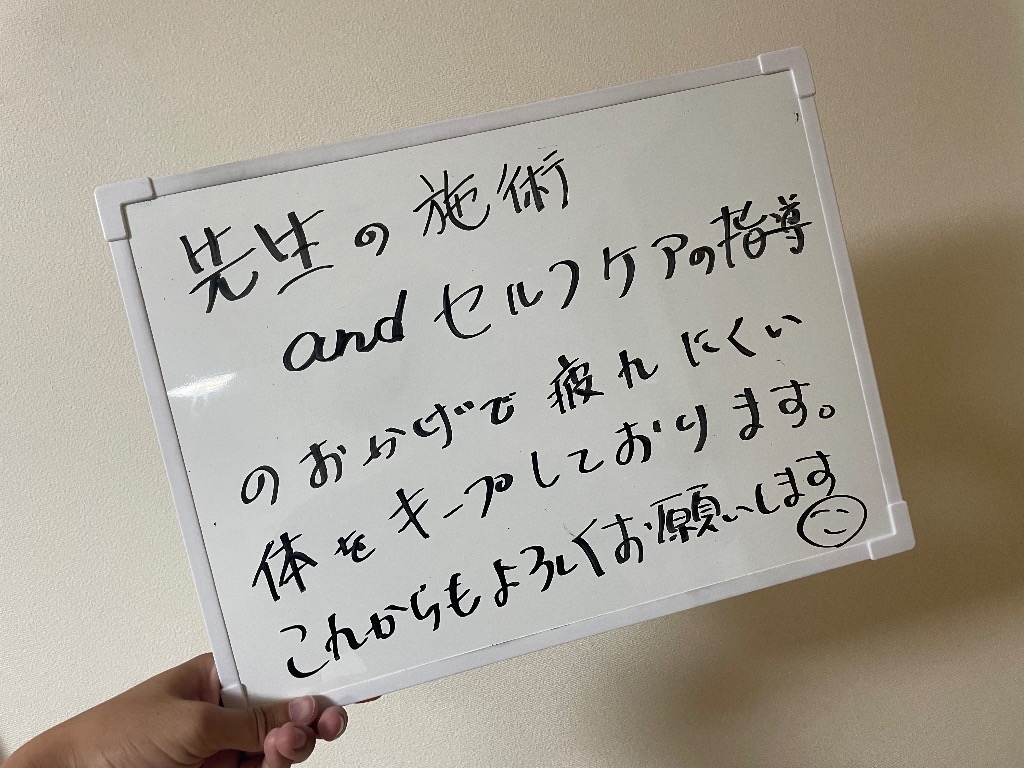 先生の施術
andセルフケアの指導
のおかげで疲れにくい
体をキープしております。
これからもよろしくお願いします